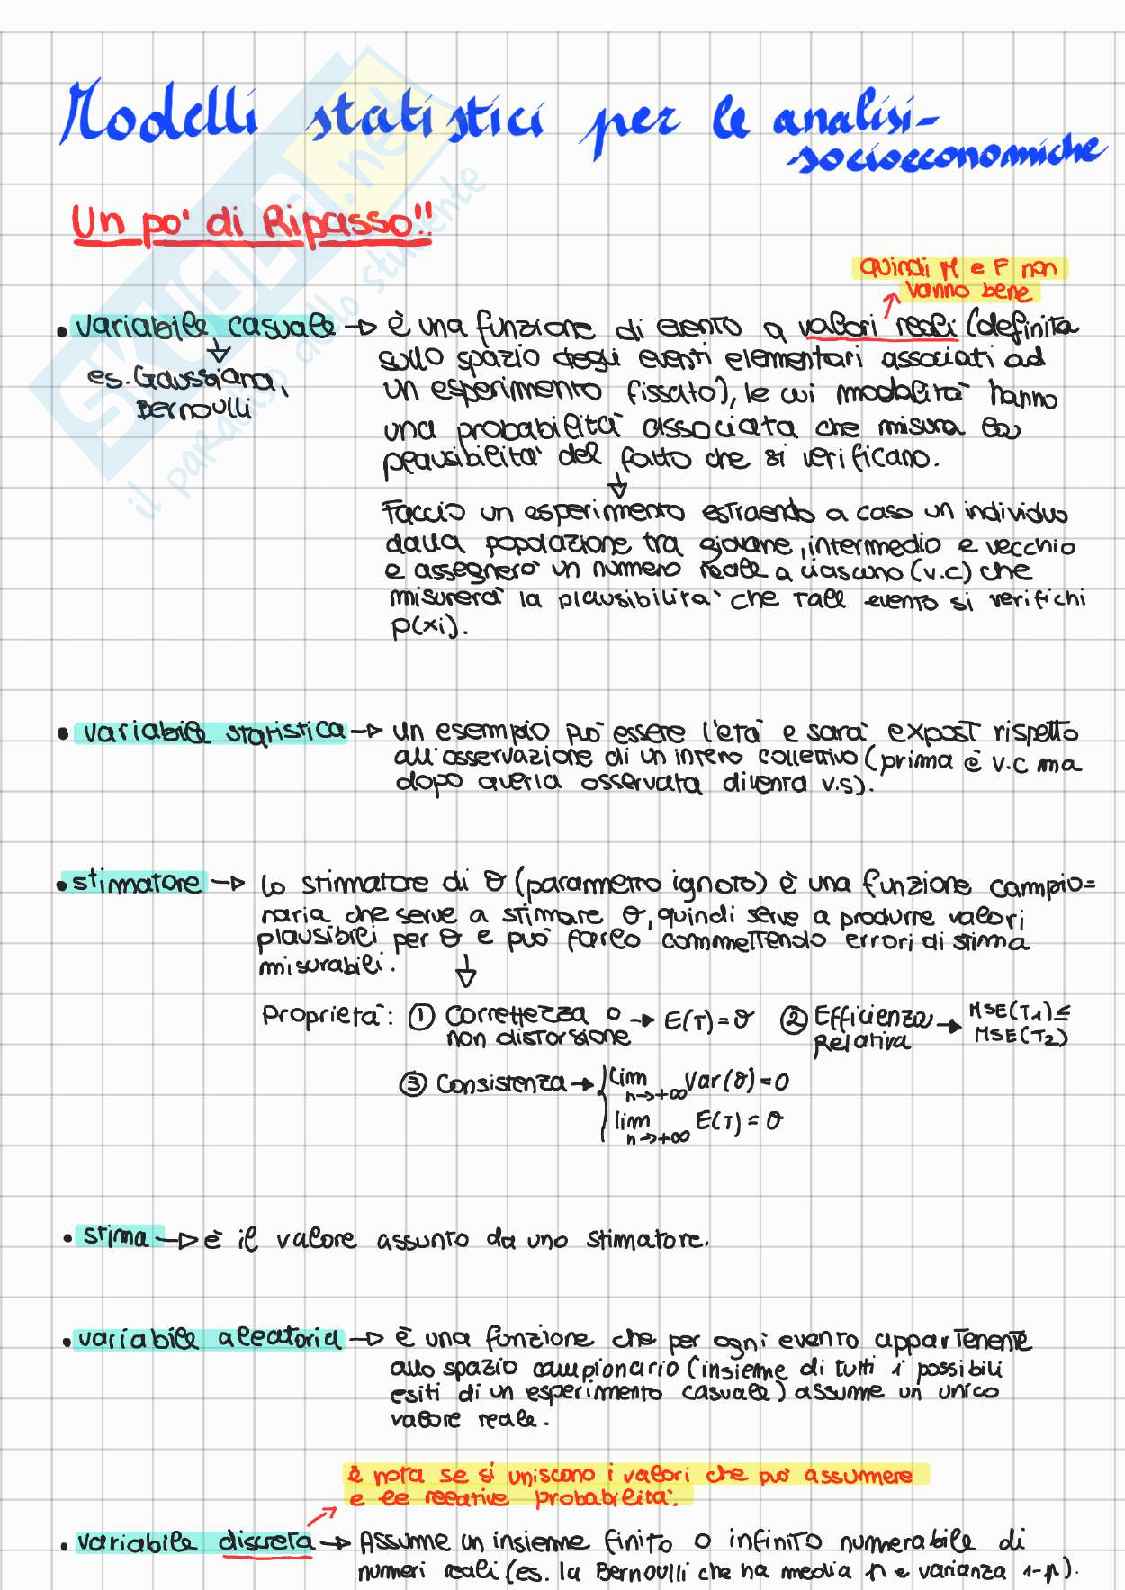 Modelli statistici per le analisi
socioeconomiche
Un po' di Ripasso!!
quindi M e F non
vanno bene
• variabile casuale → è una funzione di evento a valori reali (definita
sullo spazio degli eventi elementari associati ad
un esperimento fissato), le cui modalità hanno
una probabilità associata che misura la
plausibilità del fatto che si verificano.
es. Gaussiana,
Bernoulli
Faccio un esperimento estraendo a caso un individuo
dalla popolazione tra giovane, intermedio e vecchio
e assegnerò un numero reale a ciascuno (v.c) che
misurerà la plausibilità che tale evento si verifichi
p(xi).
• variabile statistica → un esempio può essere l'età e sarà expost rispetto
all'osservazione di un intero collettivo (prima è v.c ma
dopo averla osservata diventa v.s).
• stimatore → lo stimatore di θ (parametro ignoto) è una funzione campio=
naria che serve a stimare θ, quindi serve a produrre valori
plausibili per θ e può farlo commettendo errori di stima
misurabili.
Proprietà: ① Correttezza o → E(T)=θ ② Efficienza → MSE(T1)≤
non distorsione Relativa MSE(T2)
③ Consistenza → { lim n→+∞ Var(θ)=0
lim n→+∞ E(T)=θ
• stima → è il valore assunto da uno stimatore.
• variabile aleatoria → è una funzione che per ogni evento appartenente
allo spazio campionario (insieme di tutti i possibili
esiti di un esperimento casuale) assume un unico
valore reale.
è nota se si uniscono i valori che può assumere
e le relative probabilità.
• variabile discreta → Assume un insieme finito o infinito numerabile di
numeri reali (es. la Bernoulli che ha media p e varianza 1-p).
SKUOLA.net
il paradiso dello studente